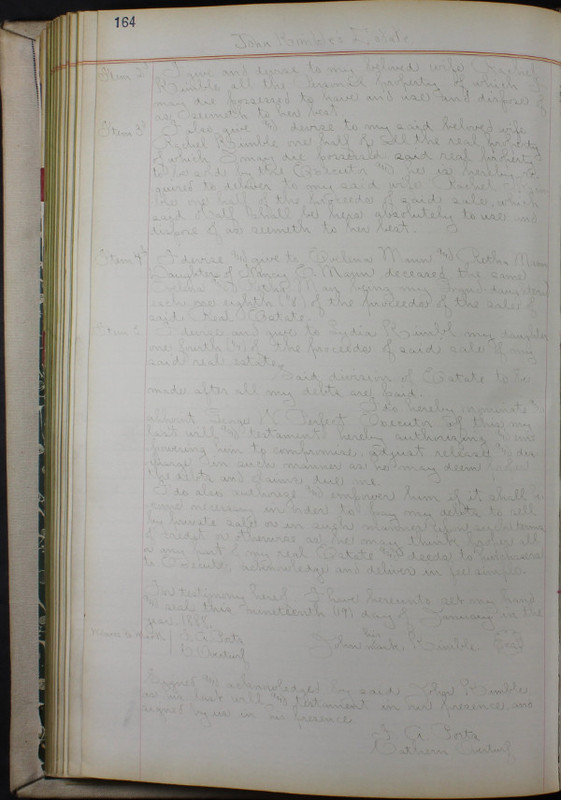 164
John Kimble's Estate
Item 2 I give and devise to my beloved wife Rachel
Kimble all the personal property of which I
may die possessed to have and use and dispose of
as seemeth to her best.
Item 3 I also give & devise to my said beloved wife
Rachel Kimble one half of all the real property
of which I may die possessed said real property
to be sold by the Executor & he is hereby re
quired to deliver to my said wife Rachel
the one half of the proceeds of said sale, which
said half shall be hers absolutely to use and
dispose of as seemeth to her best.
Item 4th I devise & give to Evelena Mann & Retha Mann
daughters of Nancy E. Mann deceased the same
Evelena & Retha Mann being my grand daughters
each one eighth (1/8) of the proceeds of the sale of
said Real Estate.
Item 5 I devise and give to Lydia Kimble my daughter
one fourth of the proceeds of said sale of my
said real estate.
Said division of Estate to be
made after all my debts are paid.
I do hereby nominate &
appoint Perfect Executor of this my
last will & testament hereby authorizing & em
powering him to compromise, adjust release & dis
charge in such manner as he may deem proper
the debts and claims due me.
I do also authorize & empower him if it shall be
come necessary in order to pay my debts to sell
by private sale or in such manner upon such terms
of credit or otherwise as he may think proper all
or any part of my real Estate & deeds to purchasers
to Execute acknowledge and deliver in fee simple.
In testimony hereof I have hereunto set my hand
& seal this nineteenth (19) day of January in the
year 1888.
Witness to mark John his mark Kimble Seal
Signed & acknowledged by said John Kimble
as his last will & testament in our presence, and
signed by us in his presence